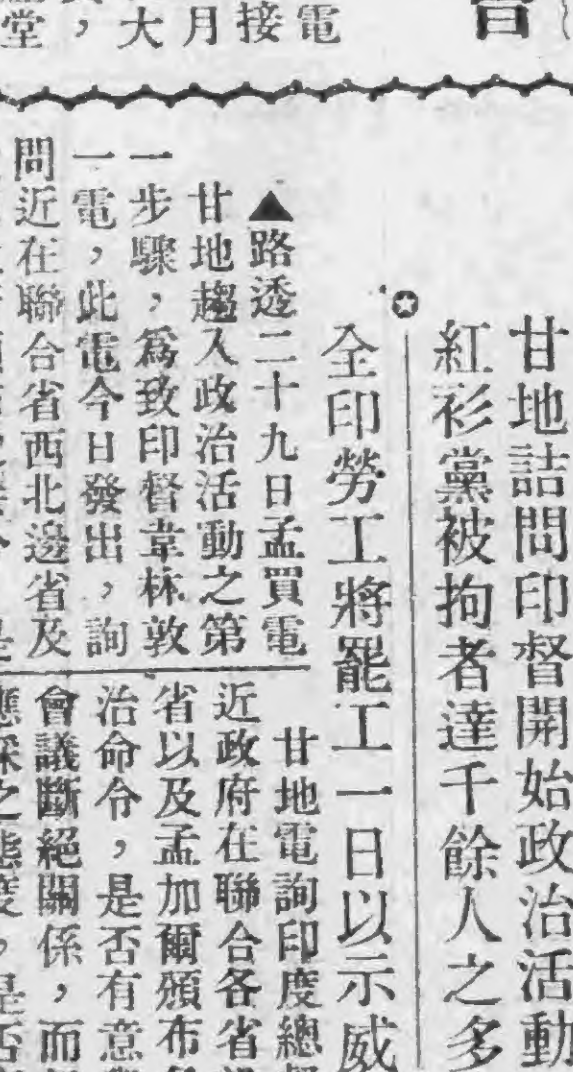 電
接
月
大
，
堂
甘地詰問印督開始政治活動
紅衫黨被拘者達千餘人之多
全印勞工將罷工一日以示威
▲路透二十九日孟買電
甘地趨入政治活動之第
一步驟，爲致印督韋林敦
一電，此電今日發出，詢
問近在聯合省西北邊省及
甘地電詢印度總
近政府在聯合各省
省以及孟加爾頒布
治命令，是否有意
會議斷絕關係，而
應採之態度，是否